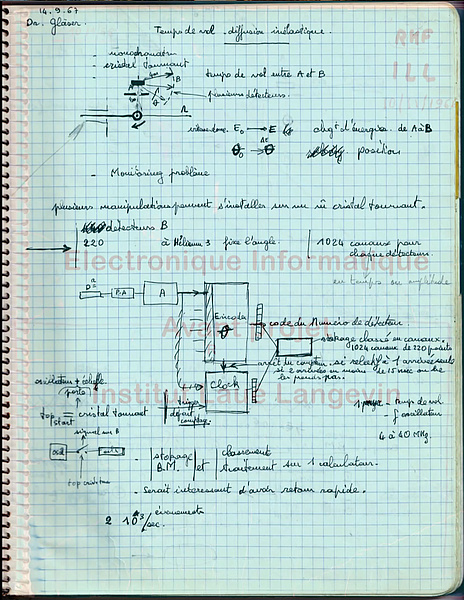 14.9.67
Dr. Gläser.
Temps de vol diffusion inélastique.
RHF
ILL
- monochromateur
- cristal tournant
temps de vol entre A et B
plusieurs détecteurs.
E₀ → E chgt d'énergie de A à B
θ₀ → θ position
- Monitoring problème
plusieurs manipulations peuvent s'installer sur un m̂ cristal tournant.
détecteurs B
220 à Hélium 3 fixe l'angle. 1024 canaux pour
chaque détecteur.
Electronique Informatique
en temps ou amplitude
D
P.A
A
Encoda
θ
code du Numéro de détecteur.
Avant Projet
stockage classé en canaux.
1024 canaux de 220 produits
arrêt du compteur. si relatif à 1 arrivée
et 2 arrivées en moins
de 15 nsec ou bien
les premiers pas.
Clock
Institut Laue Langevin
oscillateur + échelle
porte
top = cristal tournant
start
départ
comptage
temps de vol
f oscillateur
4 à 40 MHz.
signal sur B
oscil
top cristal
stockage
B.M. et classement
traitement sur 1 calculateur.
- Serait intéressant d'avoir retour rapide.
2 10³ évènements/sec.